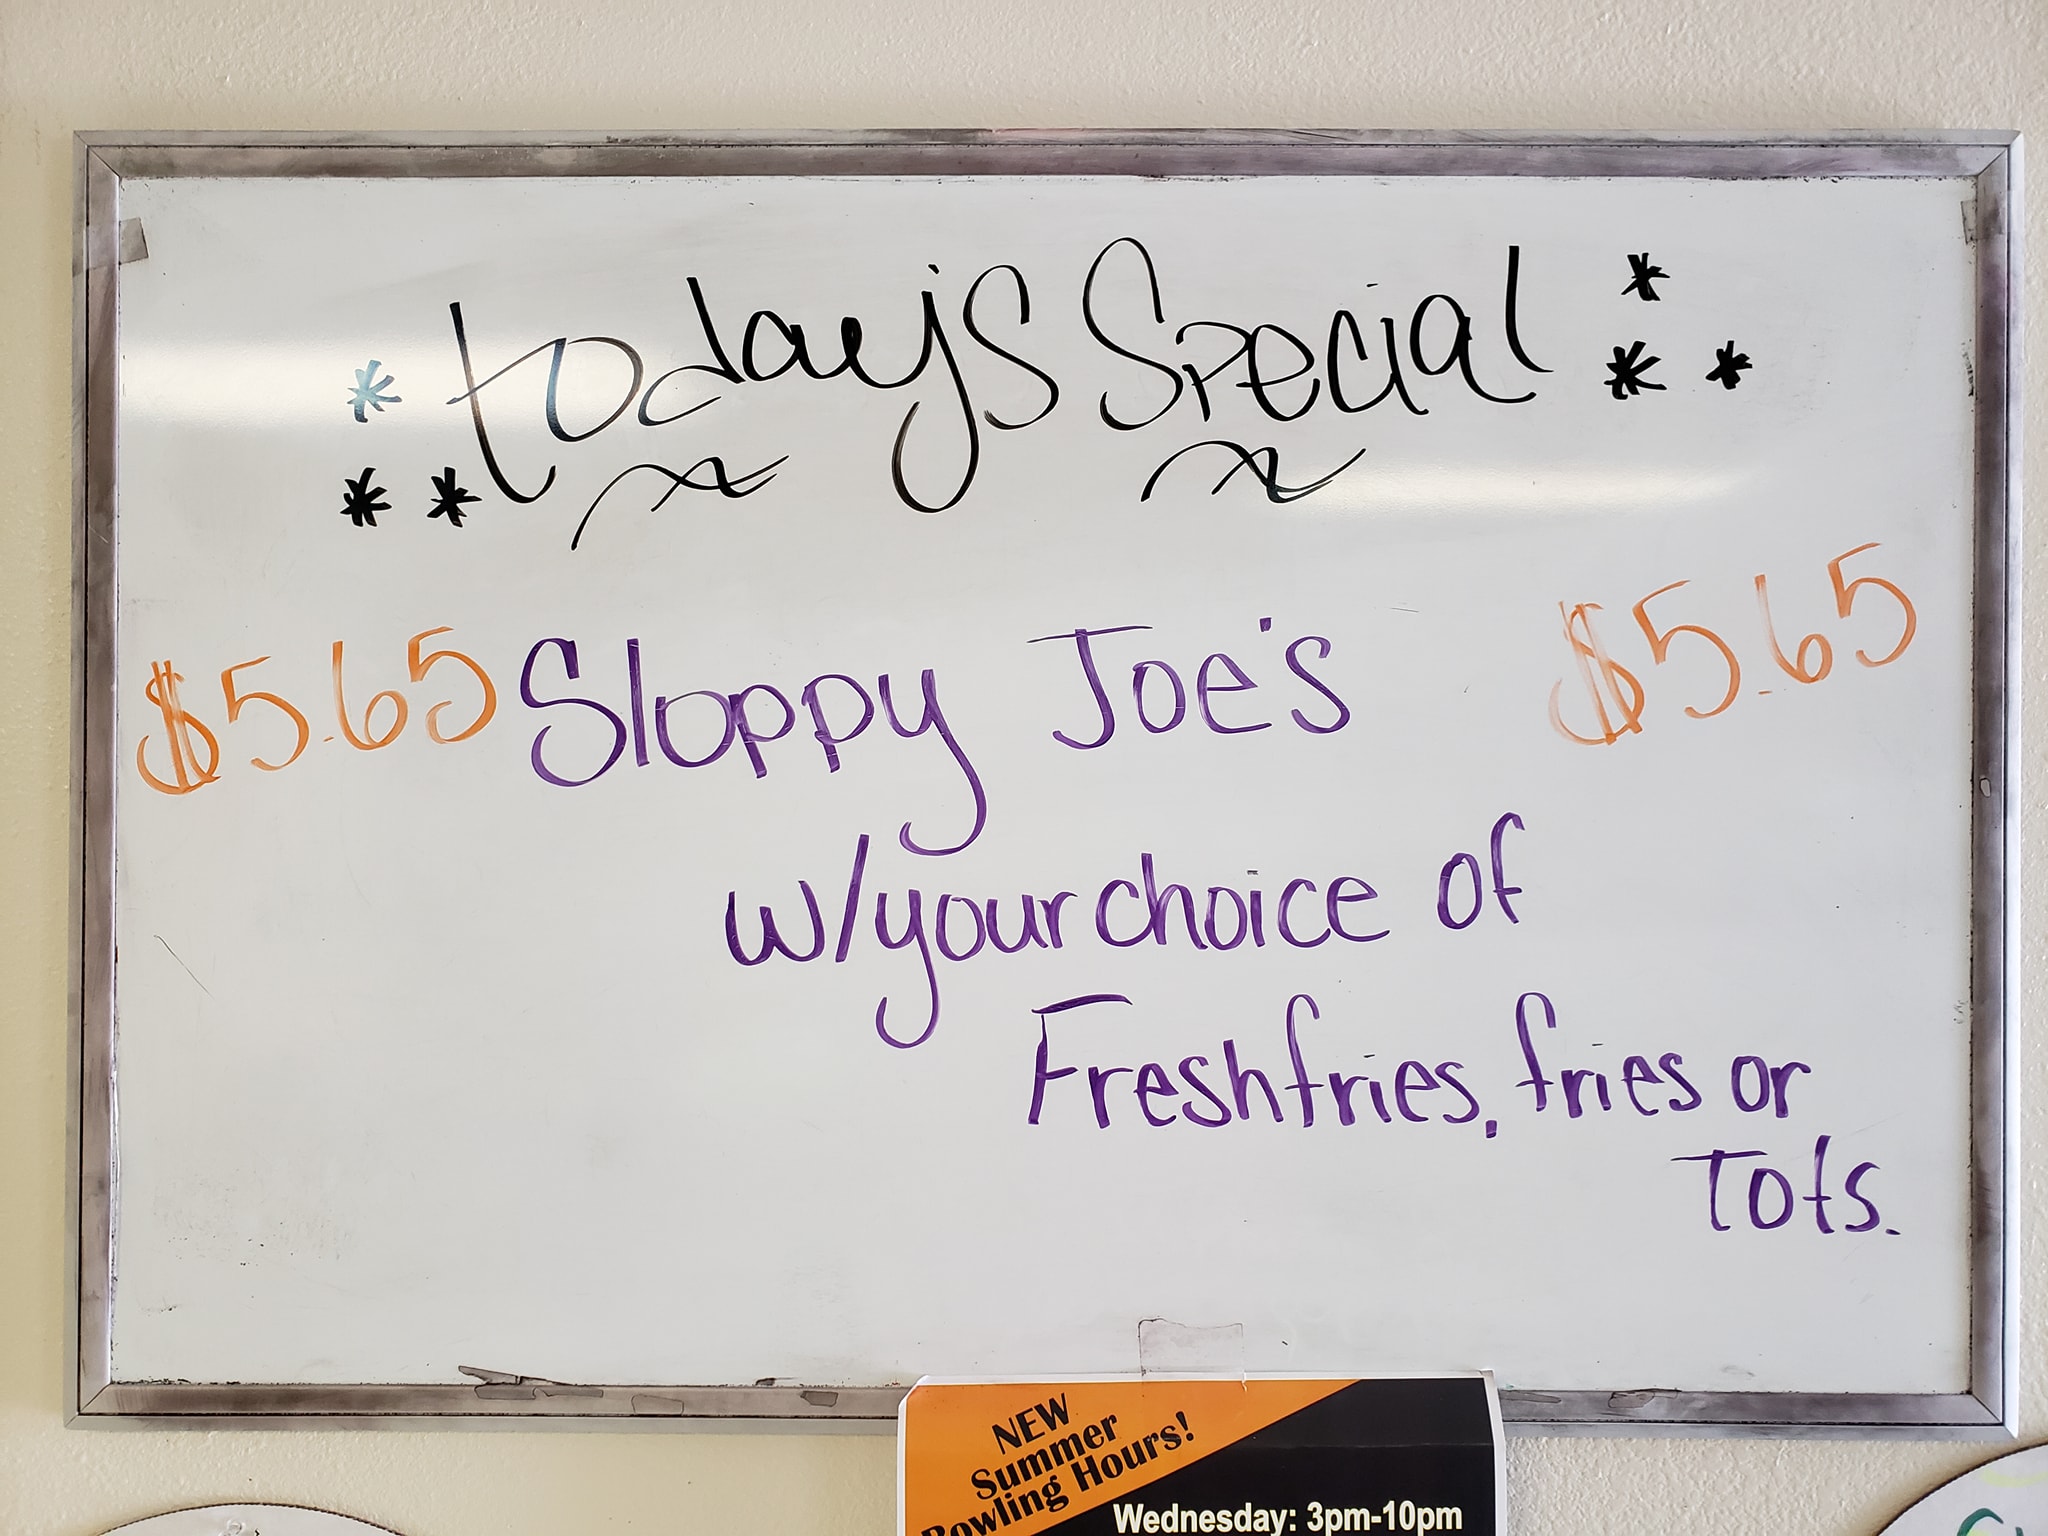 * * * today's Special * * *
$5.65 Sloppy Joe's $5.65
w/your choice of
Fresh fries, fries or
Tots.
NEW
Summer
Bowling Hours!
Wednesday: 3pm-10pm